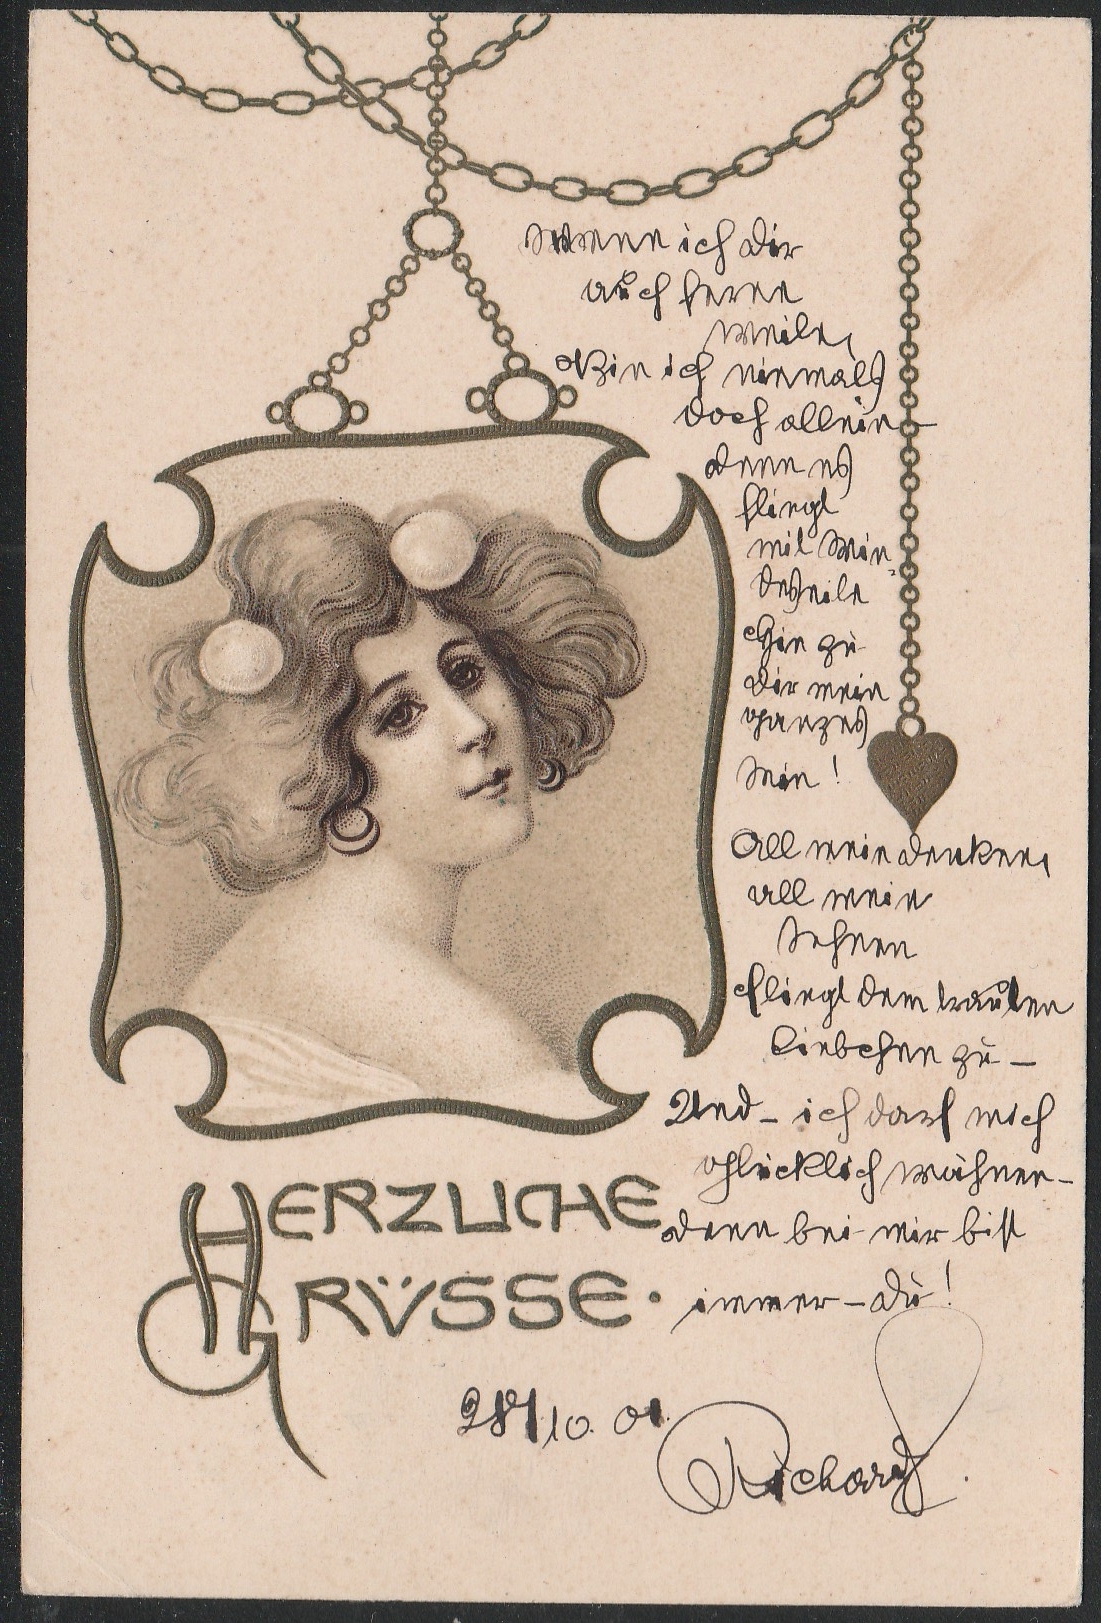 Wenn ich dir
auch ferne
weile,
Bin ich niemals
doch allein
denn es
fliegt
mit Win-
deseile
Hin zu
dir mein
ganzes
Sein!
All mein denken,
all mein
Sehnen
fliegt dem trauten
Liebchen zu –
Und – ich darf mich
glücklich wähnen –
denn bei mir bist
immer – du!
HERZLICHE
GRÜSSE.
28/10. 01.
Richard.